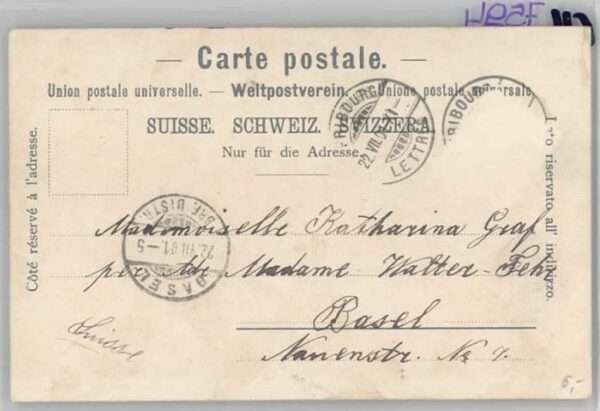 — Carte postale. —
Union postale universelle. — Weltpostverein. — Unione postale universale.
SUISSE. SCHWEIZ. SVIZZERA.
Nur für die Adresse.
Côté réservé à l'adresse.
Lato riservato all' indirizzo.
FRIBOURG
LETTR
FRIBOURG
BASEL
BRF. DISTR.
Mademoiselle Katharina Graf
Madame Walter-Fehr
Basel
Nauenstr. No 7.
Suisse
5,-